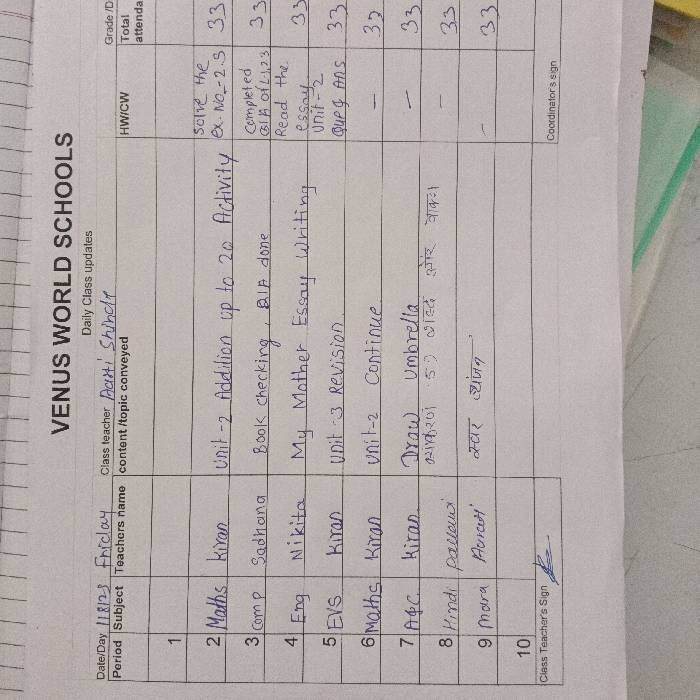 VENUS WORLD SCHOOLS
Daily Class updates
Date/Day 11/8/23 Friday Class teacher Aarti Shinde Grade /D
Period Subject Teachers name content /topic conveyed HW/CW Total attenda
1
2 Maths Kiran Unit-2 Addition up to 20 Activity Solve the ex. No.-2.3 33
3 Comp Sadhana Book checking, Q/A done Completed Q/A of L-1,2,3 33
4 Eng Nikita My Mother Essay Writing Read the essay 33
5 EVS Kiran Unit-3 Revision Unit-2 Que & Ans 33
6 Maths Kiran Unit-2 Continue — 33
7 A&C Kiran Draw Umbrella — 33
8 Hindi Pallavi व्याकरण और — 33
9 Mara स्वर व्यंजन — 33
10
Class Teacher's Sign Coordinator's sign